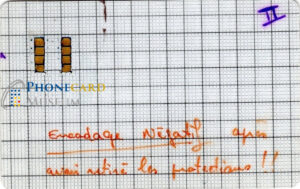 II
PHONECARD
MUSEUM
Encodage Négatif après
avoir retiré les protections !!